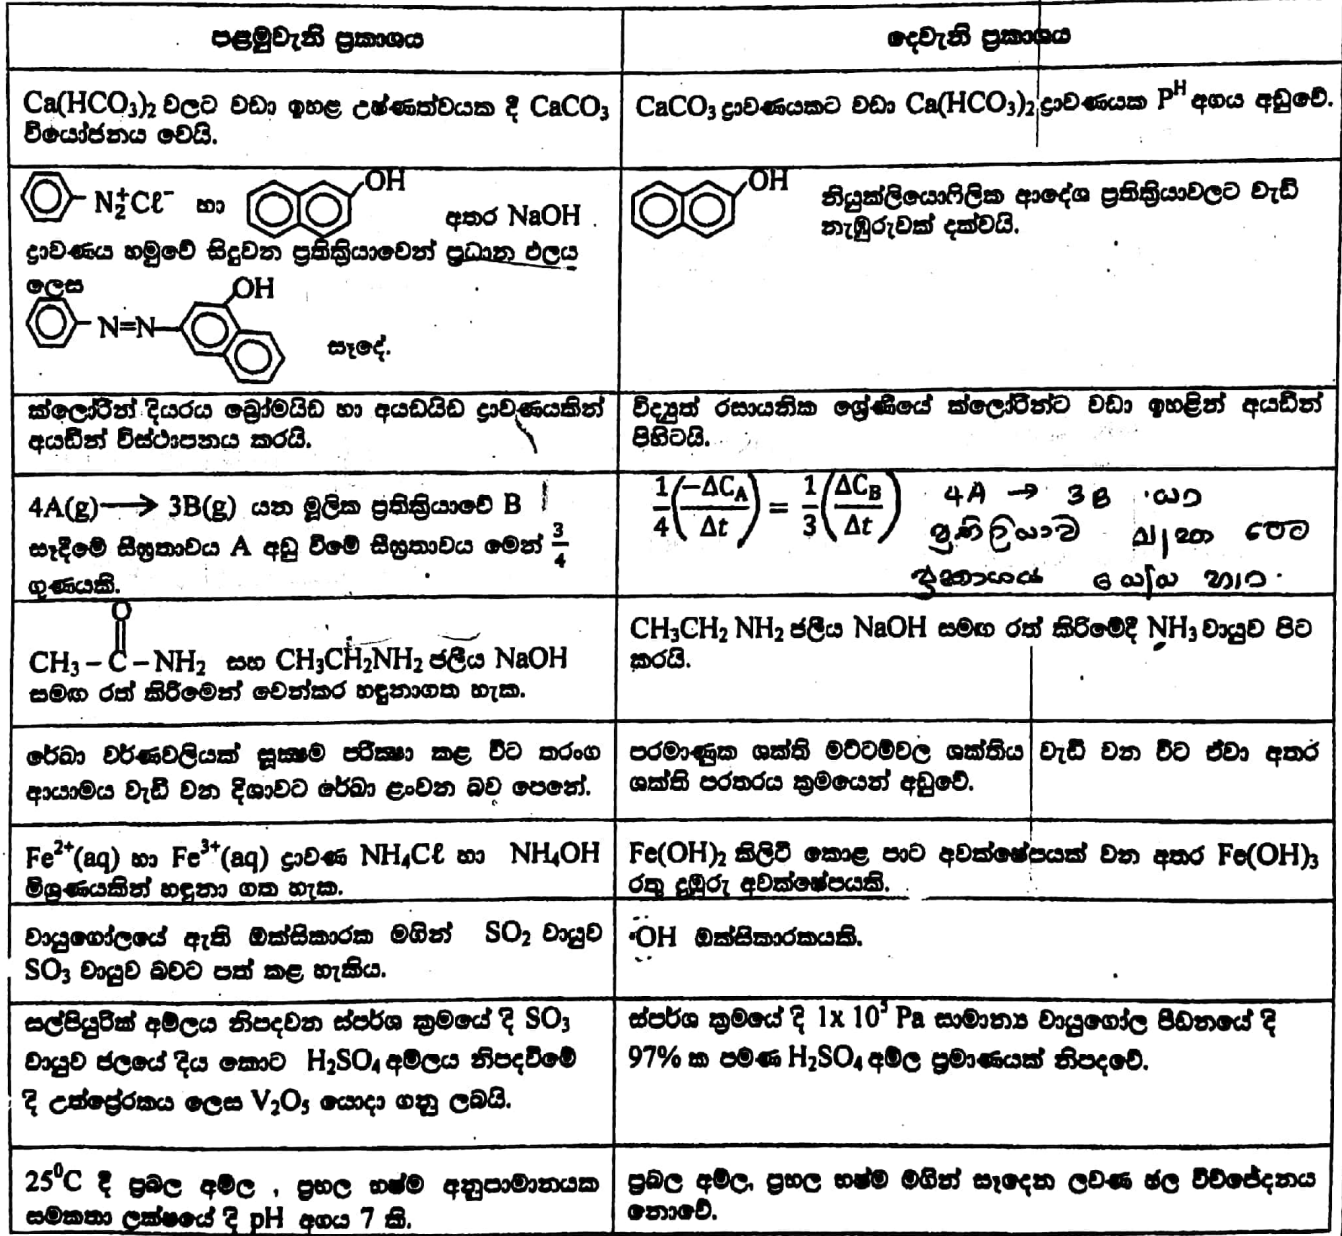 පළමුවැනි ප්‍රකාශය
දෙවැනි ප්‍රකාශය
Ca(HCO₃)₂ වලට වඩා ඉහළ උෂ්ණත්වයක දී CaCO₃
වියෝජනය වෙයි.
CaCO₃ ද්‍රාවණයකට වඩා Ca(HCO₃)₂ ද්‍රාවණයක Pᴴ අගය අඩුවේ.
N₂⁺Cℓ⁻ හා OH අතර NaOH
ද්‍රාවණය හමුවේ සිදුවන ප්‍රතික්‍රියාවෙන් ප්‍රධාන ඵලය
ලෙස OH
N=N
සෑදේ.
OH නියුක්ලියොෆිලික ආදේශ ප්‍රතික්‍රියාවලට වැඩි
නැඹුරුවක් දක්වයි.
ක්ලෝරීන් දියරය බ්‍රෝමයිඩ හා අයඩයිඩ ද්‍රාවණයකින්
අයඩීන් විස්ථාපනය කරයි.
විද්‍යුත් රසායනික ශ්‍රේණියේ ක්ලෝරීන්ට වඩා ඉහළින් අයඩීන්
පිහිටයි.
4A(g)⟶ 3B(g) යන මූලික ප්‍රතික්‍රියාවේ B
සෑදීමේ සීඝ්‍රතාවය A අඩු වීමේ සීඝ්‍රතාවය මෙන් 3/4
ගුණයකි.
1/4(−ΔC_A/Δt) = 1/3(ΔC_B/Δt) 4A → 3B යන
CH₃–C(=O)–NH₂ සහ CH₃CH₂NH₂ ජලීය NaOH
සමඟ රත් කිරීමෙන් වෙන්කර හඳුනාගත හැක.
CH₃CH₂ NH₂ ජලීය NaOH සමඟ රත් කිරීමේදී NH₃ වායුව පිට
කරයි.
රේඛා වර්ණවලියක් සූක්‍ෂම පරීක්‍ෂා කළ විට තරංග
ආයාමය වැඩි වන දිශාවට රේඛා ළංවන බව පෙනේ.
පරමාණුක ශක්ති මට්ටම්වල ශක්තිය වැඩි වන විට ඒවා අතර
ශක්ති පරතරය ක්‍රමයෙන් අඩුවේ.
Fe²⁺(aq) හා Fe³⁺(aq) ද්‍රාවණ NH₄Cℓ හා NH₄OH
මිශ්‍රණයකින් හඳුනා ගත හැක.
Fe(OH)₂ කිලිටි කොළ පාට අවක්ෂේපයක් වන අතර Fe(OH)₃
රතු දුඹුරු අවක්ෂේපයකි.
වායුගෝලයේ ඇති ඔක්සිකාරක මගින් SO₂ වායුව
SO₃ වායුව බවට පත් කළ හැකිය.
·OH ඔක්සිකාරකයකි.
සල්පියුරික් අම්ලය නිපදවන ස්පර්ශ ක්‍රමයේ දී SO₃
වායුව ජලයේ දිය කොට H₂SO₄ අම්ලය නිපදවීමේ
දී උත්ප්‍රේරකය ලෙස V₂O₅ යොදා ගනු ලබයි.
ස්පර්ශ ක්‍රමයේ දී 1x 10⁵ Pa සාමාන්‍ය වායුගෝල පීඩනයේ දී
97% ක පමණ H₂SO₄ අම්ල ප්‍රමාණයක් නිපදවේ.
25⁰C දී ප්‍රබල අම්ල , ප්‍රභල භෂ්ම අනුපාමානයක
සමකතා ලක්ෂයේ දී pH අගය 7 කි.
ප්‍රබල අම්ල, ප්‍රභල භෂ්ම මගින් සෑදෙන ලවණ ජල විච්ඡේදනය
නොවේ.